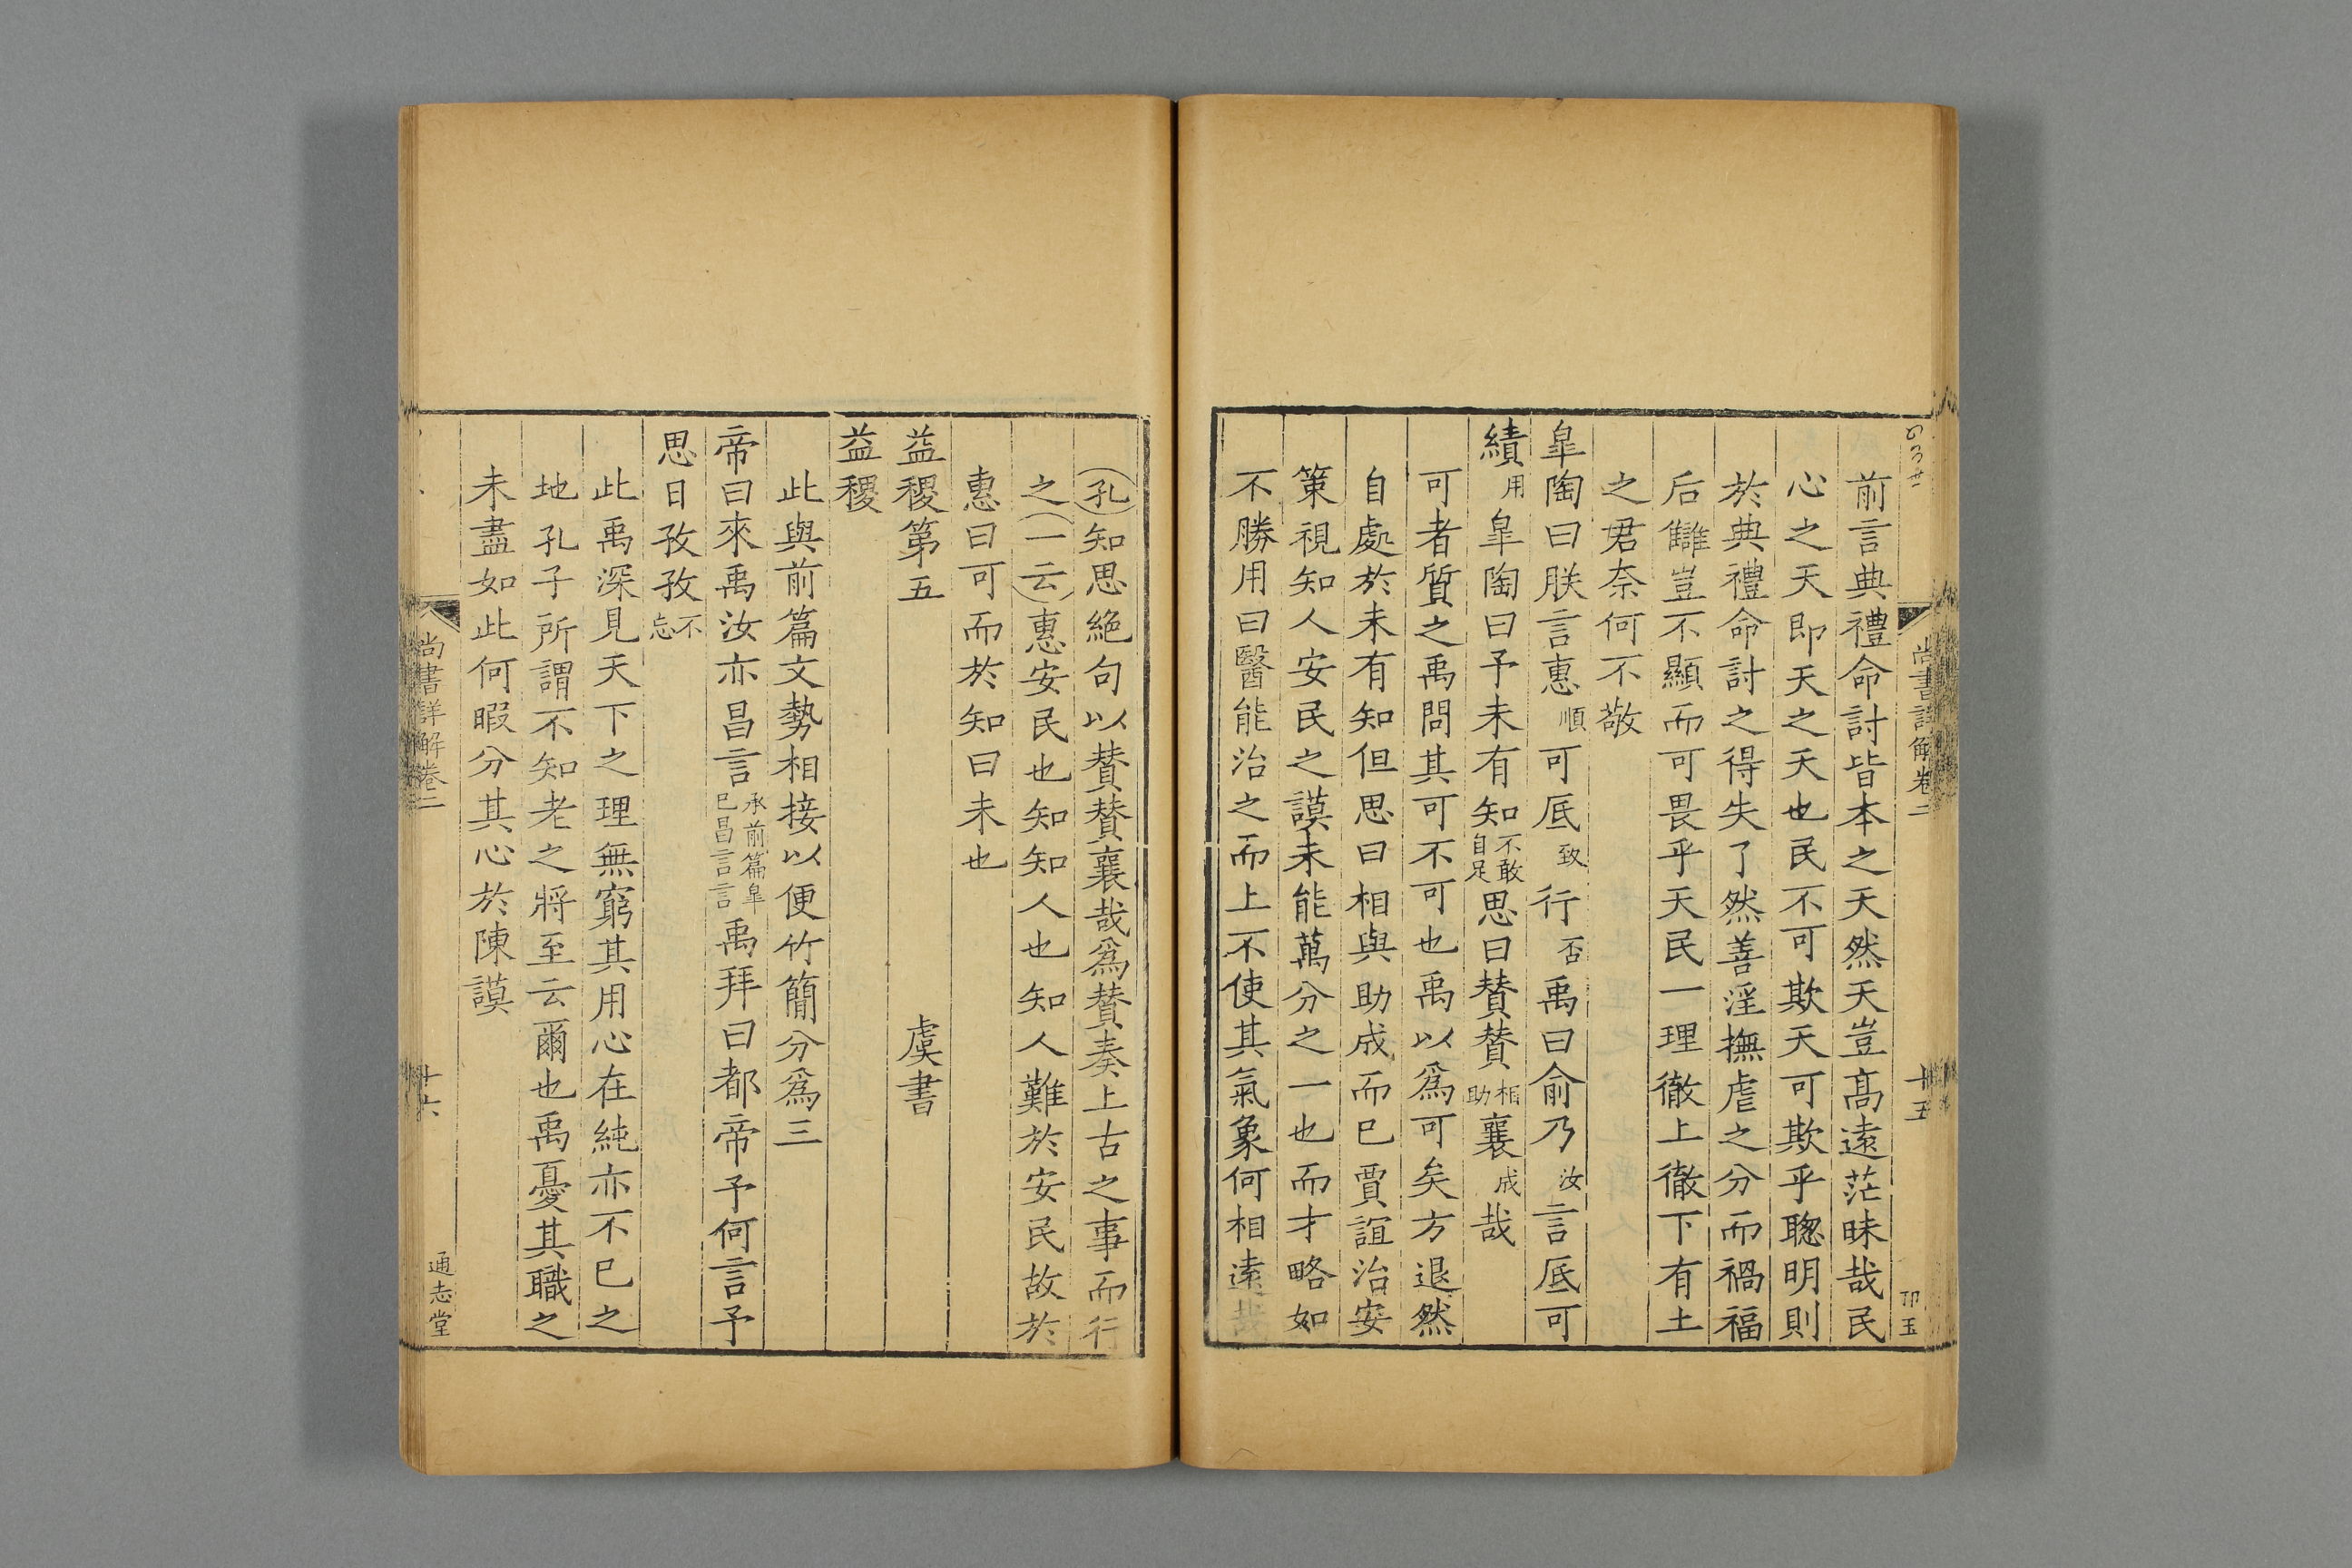 尚書詳解卷二
十五
前言典禮命討皆本之天然天豈高遠茫昧哉民
心之天即天之天也民不可欺天可欺乎聰明則
於典禮命討之得失了然善淫撫虐之分而禍福
后讎豈不顯而可畏乎天民一理徹上徹下有土
之君奈何不敬
臯陶曰朕言惠順可厎致行否禹曰俞乃汝言厎可
績用臯陶曰予未有知不敢自足思曰賛賛相助襄成哉
可者質之禹問其可不可也禹以爲可矣方退然
自處於未有知但思曰相與助成而已賈誼治安
策視知人安民之謨未能萬分之一也而才略如
不勝用曰醫能治之而上不使其氣象何相遠哉
(孔)知思絕句以賛賛襄哉爲賛奏上古之事而行
之(一云)惠安民也知知人也知人難於安民故於
惠曰可而於知曰未也
益稷第五 虞書
益稷
此與前篇文勢相接以便竹簡分爲三
帝曰來禹汝亦昌言承前篇臯已昌言言禹拜曰都帝予何言予
思日孜孜不忘
此禹深見天下之理無窮其用心在純亦不已之
地孔子所謂不知老之將至云爾也禹憂其職之
未盡如此何暇分其心於陳謨
尚書詳解卷二
十六
通志堂